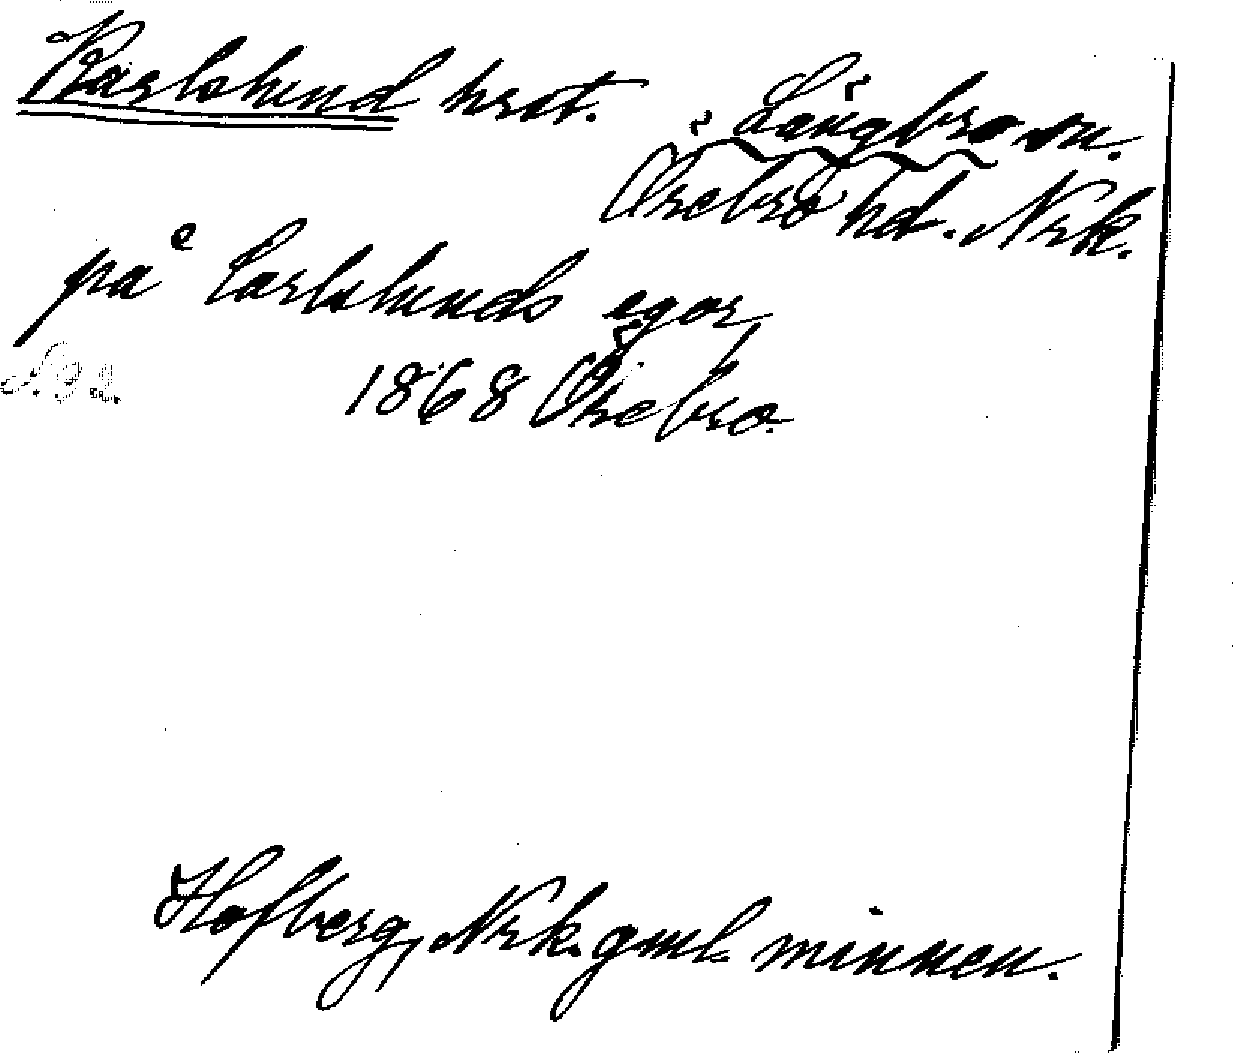 Karlslund hrst. Långbro sn.
Örebro hd. Nrk.
på Carlslunds egor
1868 Örebro.
Hofberg, Nrk. gml. minnen.